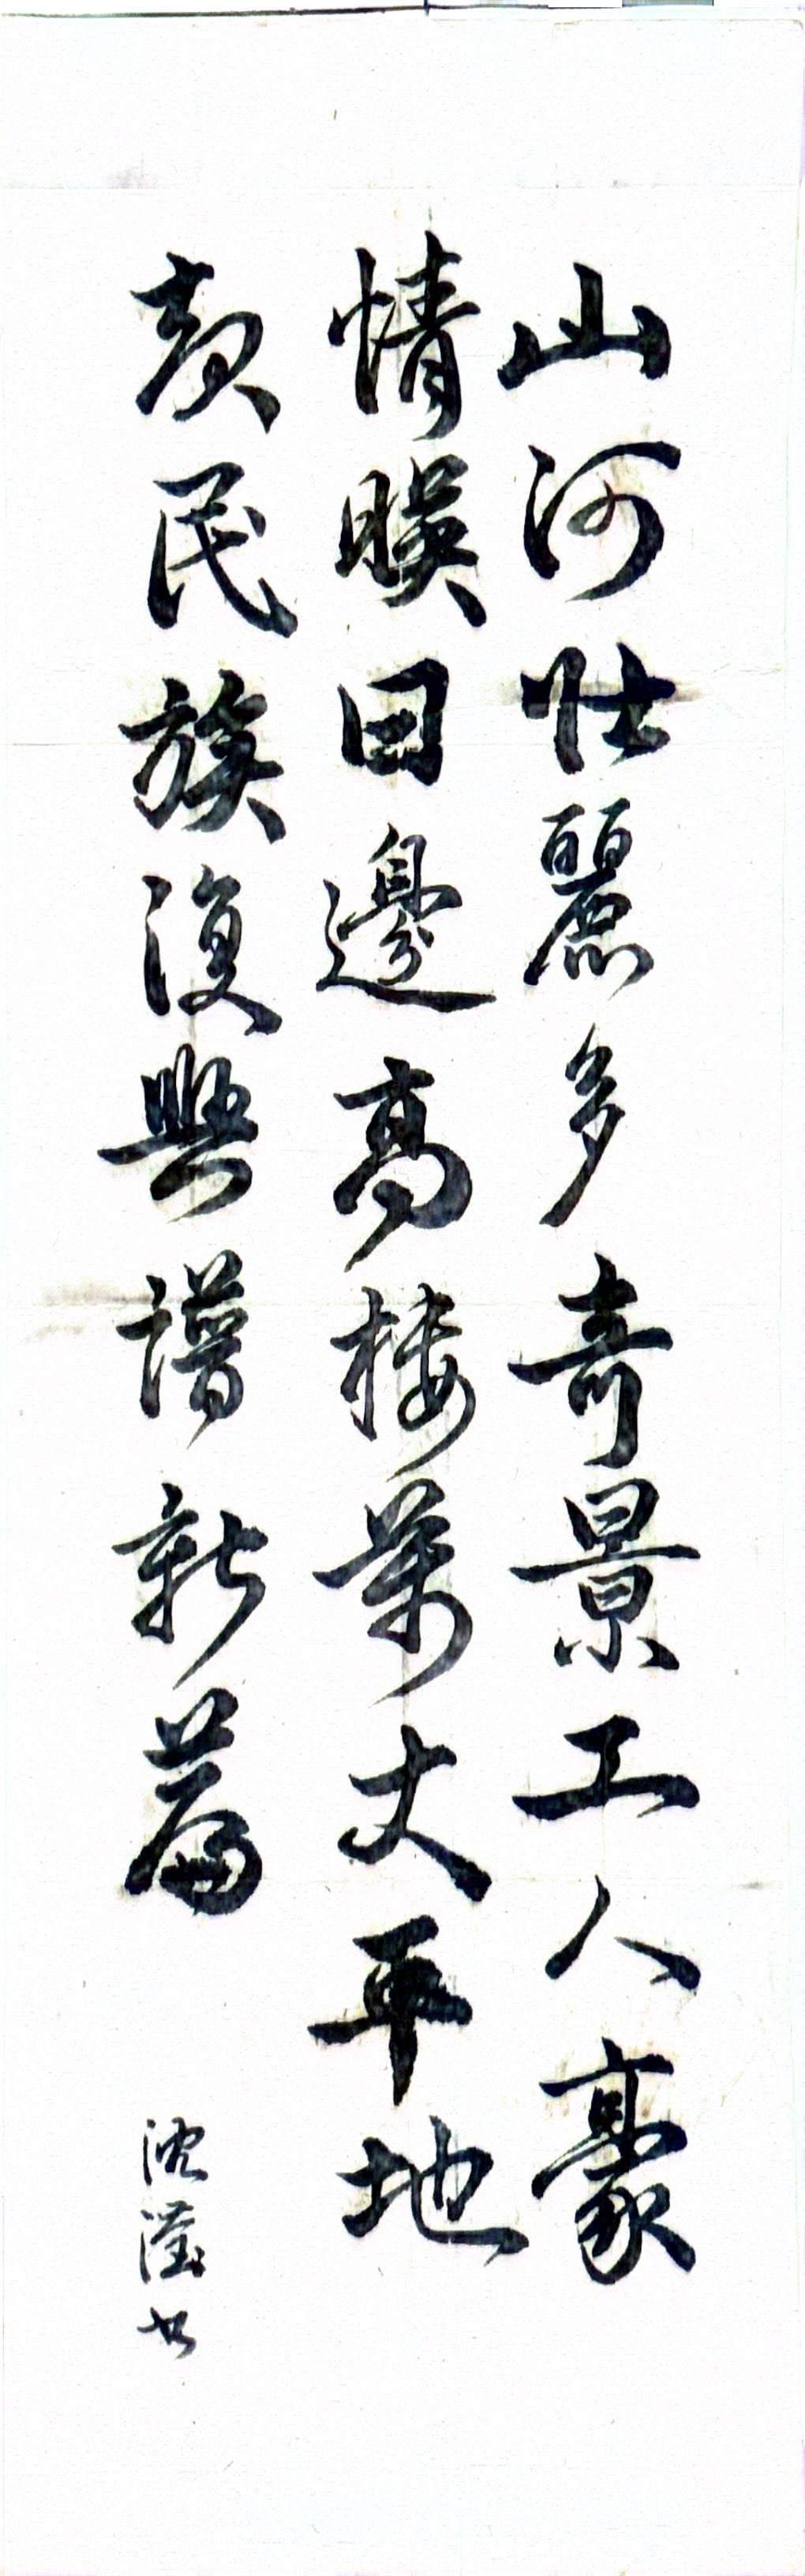 山河壮麗多奇景工人豪
情暎日邊高楼萬丈平地
起民族復興譜新篇
沈瀅書